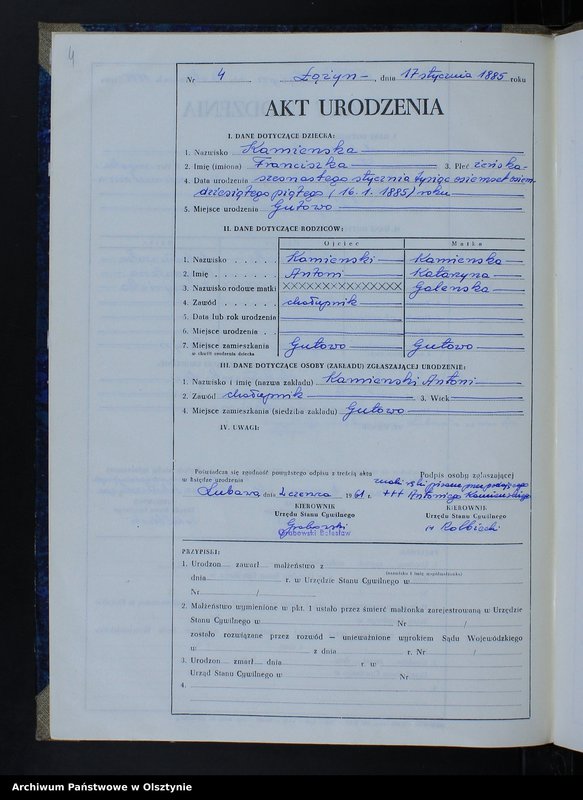 4
Nr 4 Łążyn -, dnia 17 stycznia 1885 roku
AKT URODZENIA
I. DANE DOTYCZĄCE DZIECKA:
1. Nazwisko Kamienska
2. Imię (imiona) Franciszka 3. Płeć żeńska-
4. Data urodzenia szesnastego stycznia tysiąc osiemset osiem-
dziesiątego piątego (16.1.1885) roku
5. Miejsce urodzenia Gutowo
II. DANE DOTYCZĄCE RODZICÓW:
Ojciec Matka
1. Nazwisko Kamienski Kamienska
2. Imię Antoni Katarzyna
3. Nazwisko rodowe matki XXXXXXXXXXXXXXX Galenska
4. Zawód chałupnik
5. Data lub rok urodzenia
6. Miejsce urodzenia
7. Miejsce zamieszkania Gutowo Gutowo
w chwili urodzenia dziecka
III. DANE DOTYCZĄCE OSOBY (ZAKŁADU) ZGŁASZAJĄCEJ URODZENIE:
1. Nazwisko i imię (nazwa zakładu) Kamienski Antoni
2. Zawód chałupnik 3. Wiek
4. Miejsce zamieszkania (siedziba zakładu) Gutowo
IV. UWAGI:
Poświadcza się zgodność powyższego odpisu z treścią aktu
w księdze urodzenia
Podpis osoby zgłaszającej
znaki
Lubawa, dnia 2 czerwca 1961 r. +++ Antoniego Kamienskiego
KIEROWNIK
Urzędu Stanu Cywilnego
Grabowski
Grabowski Bolesław
KIEROWNIK
Urzędu Stanu Cywilnego
PRZYPISKI:
1. Urodzon zawarł małżeństwo z
(nazwisko i imię współmałżonka)
dnia r. w Urzędzie Stanu Cywilnego w
Nr /
2. Małżeństwo wymienione w pkt. 1 ustało przez śmierć małżonka zarejestrowaną w Urzędzie
Stanu Cywilnego w Nr /
zostało rozwiązane przez rozwód – unieważnione wyrokiem Sądu Wojewódzkiego
w z dnia r. Nr /
3. Urodzon zmarł dnia r. w
Urząd Stanu Cywilnego w Nr
4.
Archiwum Państwowe w Olsztynie